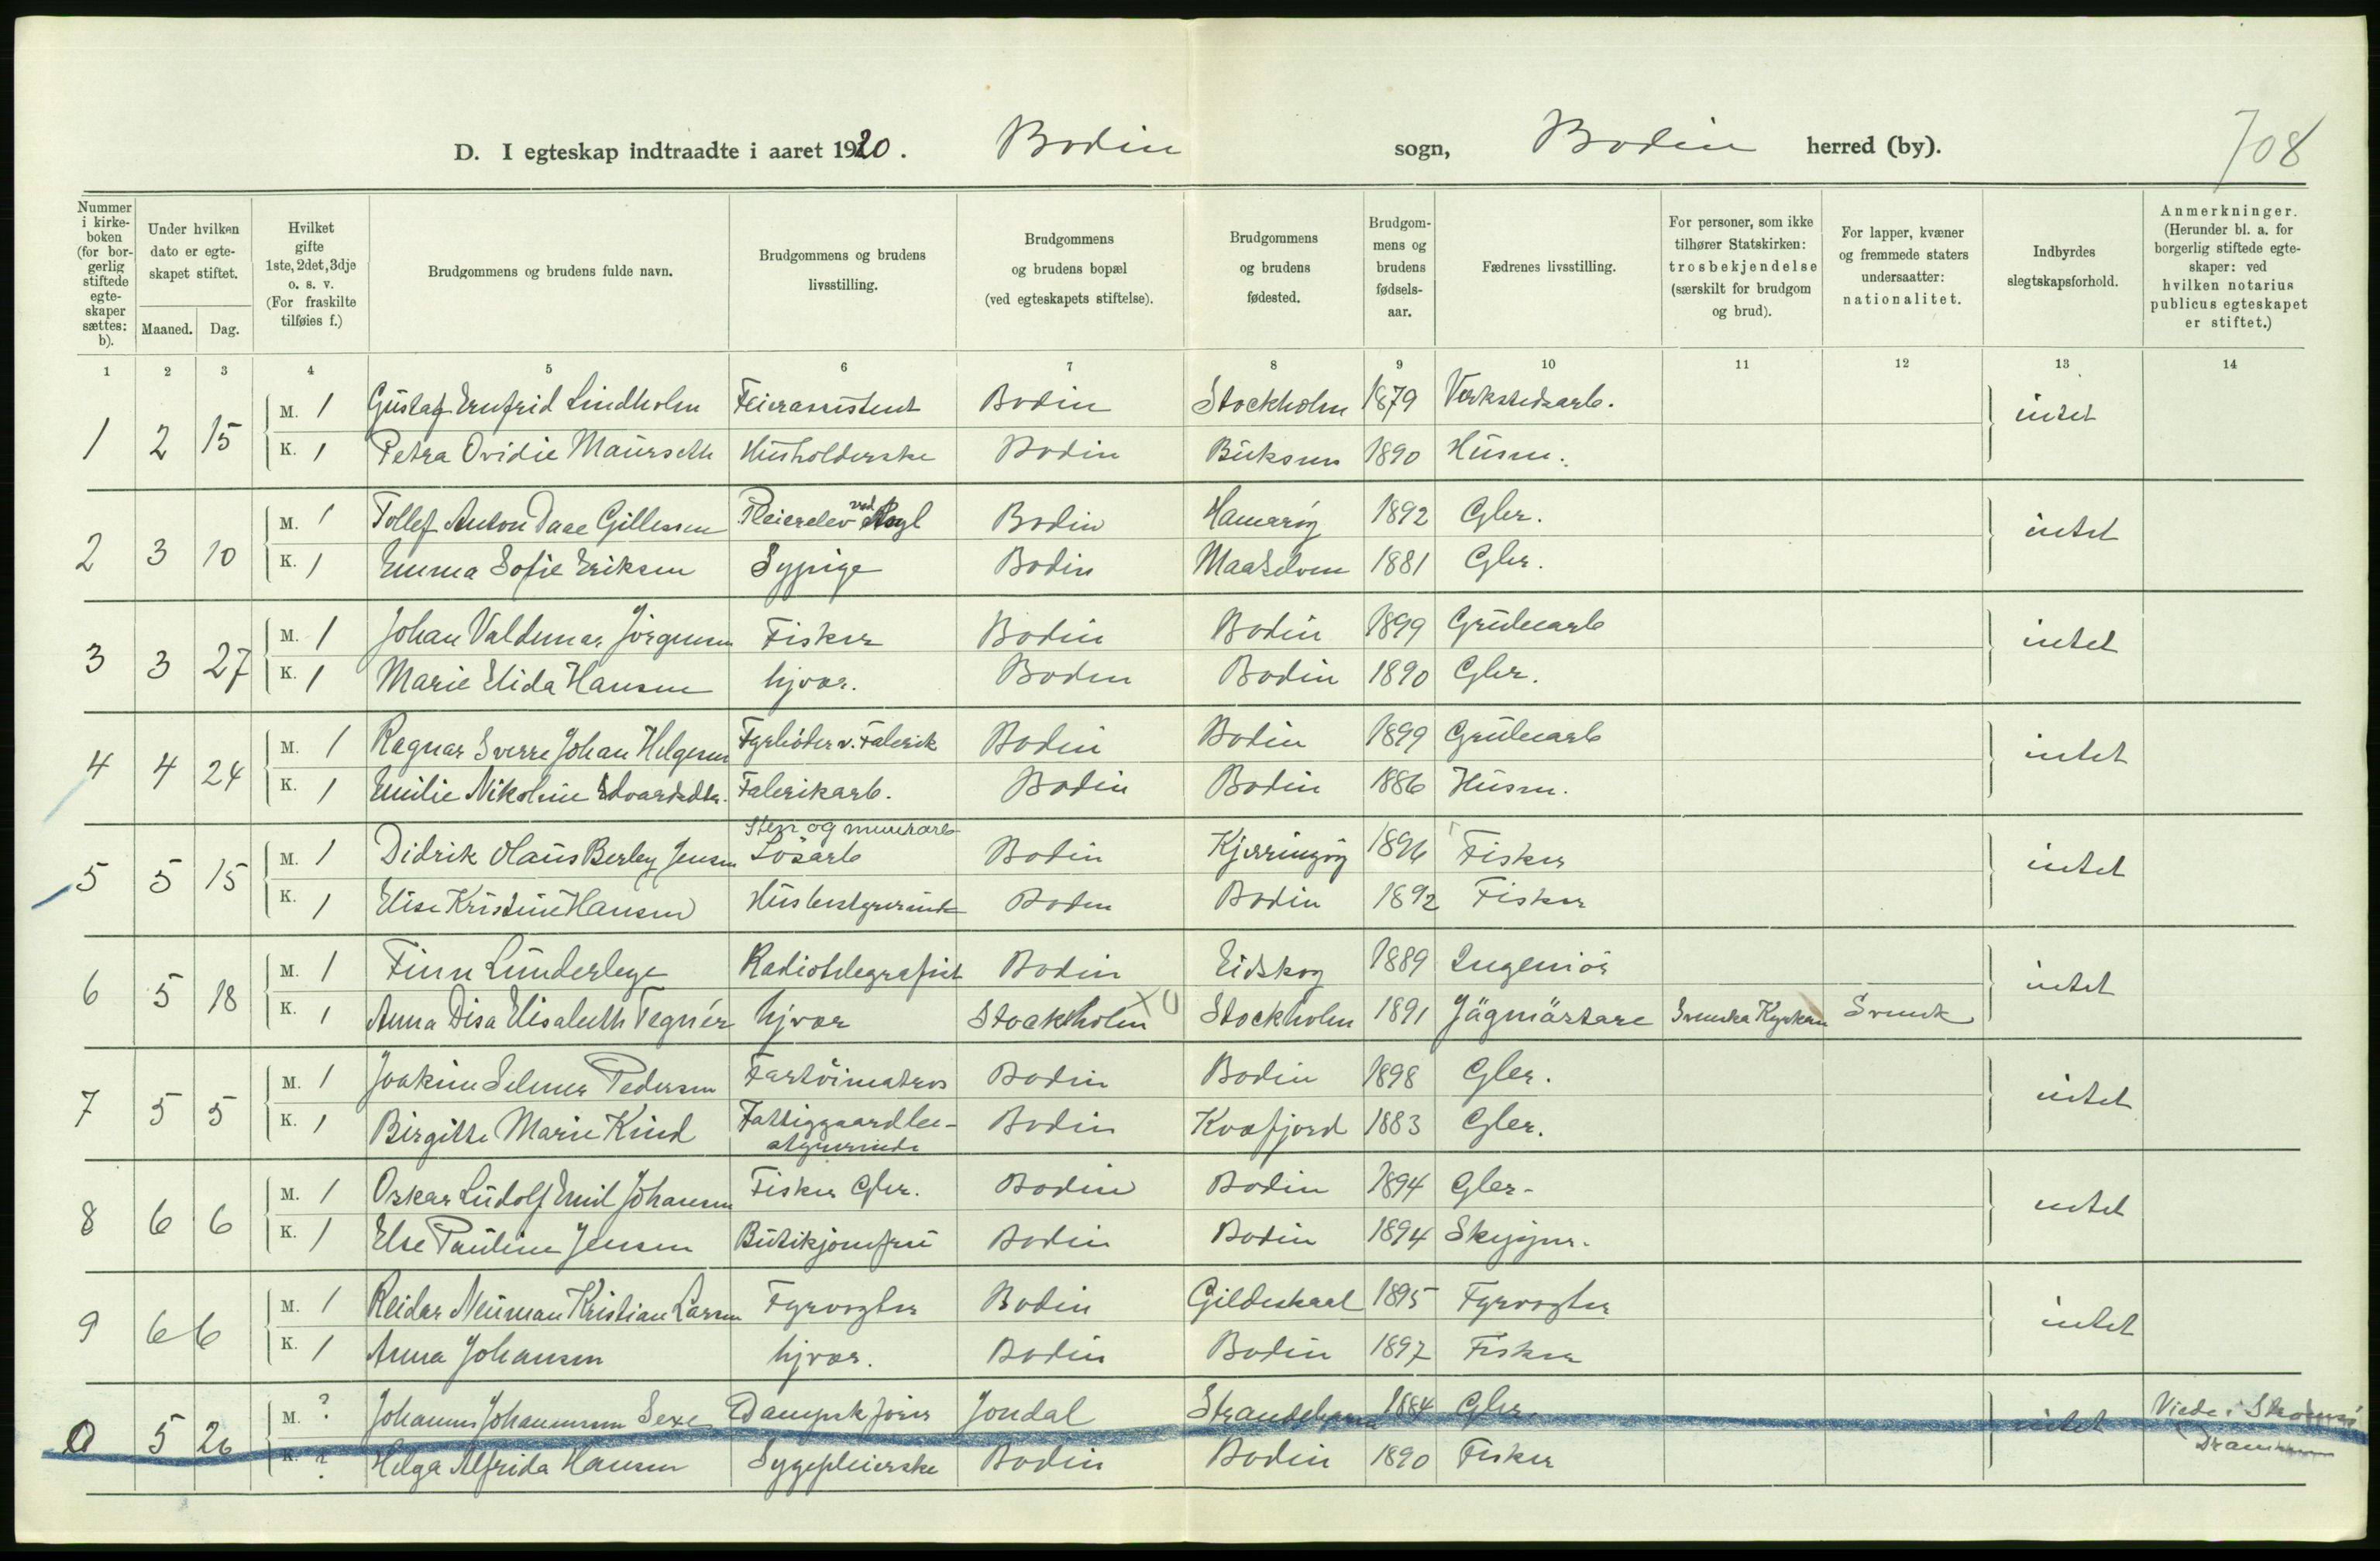 D. I egteskap indtraadte i aaret 1920. Bodin sogn, Bodin herred (by). 708
Nummer i kirke- boken (for bor- gerlig stiftede egte- skaper sættes: b).
Under hvilken dato er egte- skapet stiftet.
Maaned. Dag.
Hvilket gifte 1ste, 2det, 3dje o. s. v. (For fraskilte tilføies f.)
Brudgommens og brudens fulde navn.
Brudgommens og brudens livsstilling.
Brudgommens og brudens bopæl (ved egteskapets stiftelse).
Brudgommens og brudens fødested.
Brudgom- mens og brudens fødsels- aar.
Fædrenes livsstilling.
For personer, som ikke tilhører Statskirken: trosbekjendelse (særskilt for brudgom og brud).
For lapper, kvæner og fremmede staters undersaatter: nationalitet.
Indbyrdes slegtskapsforhold.
Anmerkninger. (Herunder bl. a. for borgerlig stiftede egte- skaper: ved hvilken notarius publicus egteskapet er stiftet.)
1 2 3 4 5 6 7 8 9 10 11 12 13 14
1 2 15 M. 1 Gustaf Ernfrid Lindholm Feierassistent Bodin Stockholm 1879 Verkstedsarb. intet
K. 1 Petra Ovidie Maurseth Husholderske Bodin Buksnes 1890 Husm.
2 3 10 M. 1 Tollef Anton Daae Gillesen Pleierelev ved Asyl Bodin Hamarøy 1892 Gbr. intet
K. 1 Emma Sofie Eriksen Sypige Bodin Maaselven 1881 Gbr.
3 3 27 M. 1 Johan Valdemar Jörgensen Fisker Bodin Bodin 1899 Grubearb intet
K. 1 Marie Elida Hansen hjvær. Bodin Bodin 1890 Gbr.
4 4 24 M. 1 Ragnar Sverre Johan Helgesen Fyrböder v. Fabrik Bodin Bodin 1899 Grubearb intet
K. 1 Emilie Nikoline Edvardsdtr. Fabrikarb. Bodin Bodin 1886 Husm.
Sten og murerarb
5 5 15 M. 1 Didrik Olaus Berley Jensen Løsarb Bodin Kjerringøy 1896 Fisker intet
K. 1 Elise Kristine Hansen Husbestyrerinde Bodin Bodin 1892 Fisker
6 5 18 M. 1 Finn Lünderbye Radiotelegrafist Bodin Eidskog 1889 Ingeniör intet
K. 1 Anna Disa Elisabeth Tegnér hjvær Stockholm Stockholm 1891 Jägmästare Svenska Kyrkan Svensk
7 5 5 M. 1 Joakim Selmer Pedersen Fartöimatros Bodin Bodin 1898 Gbr. intet
K. 1 Birgitte Marie Kind Fattiggaardbe- Bodin Kvæfjord 1883 Gbr.
styrerinde
8 6 6 M. 1 Oskar Ludolf Emil Johansen Fisker Gbr. Bodin Bodin 1894 Gbr. intet
K. 1 Else Pauline Jensen Butikjomfru Bodin Bodin 1894 Skyggnr.
9 6 6 M. 1 Reidar Neuman Kristian Larsen Fyrvogter Bodin Gildeskaal 1895 Fyrvogter intet
K. 1 Anna Johansen hjvær. Bodin Bodin 1897 Fisker
0 5 26 M. ? Johannes Johannessen Sexe Dampskförer Jondal Strandebarm 1884 Gbr. intet Viede i Strömsö
K. ? Helga Alfrida Hansen Sygepleierske Bodin Bodin 1890 Fisker Drammen